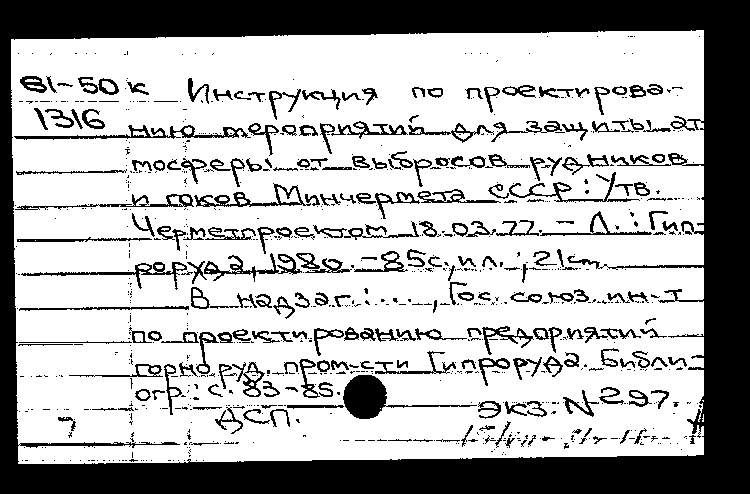 81-50к Инструкция по проектирова-
1316 нию мероприятий для защиты ат
мосферы от выбросов рудников
и гоков Минчермета СССР: Утв.
Черметпроектом 18.03.77. - Л.: Гип-
роруда, 1980. - 85с., ил.; 21cm.
В надзаг.: ..., Гос. союз. ин-т
по проектированию предприятий
горноруд. пром-сти Гипроруда. Библи-
огр.: с. 83-85.
7 ДСП. экз. N 297.